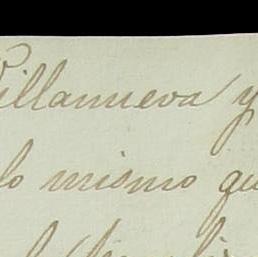 Villanueva y
lo mismo qu